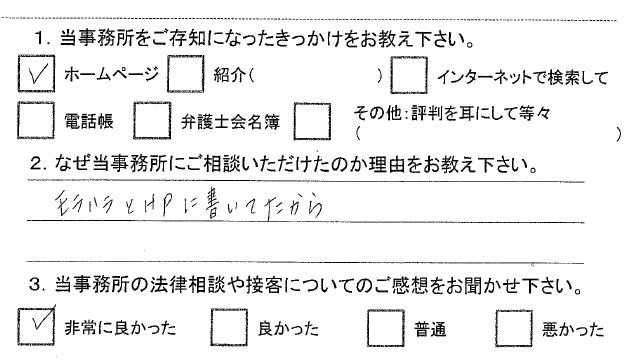 1. 当事務所をご存知になったきっかけをお教え下さい。
☑ ホームページ □ 紹介( ) □ インターネットで検索して
□ 電話帳 □ 弁護士会名簿 □ その他:評判を耳にして等々
( )
2. なぜ当事務所にご相談いただけたのか理由をお教え下さい。
モラハラとHPに書いてたから
3. 当事務所の法律相談や接客についてのご感想をお聞かせ下さい。
☑ 非常に良かった □ 良かった □ 普通 □ 悪かった